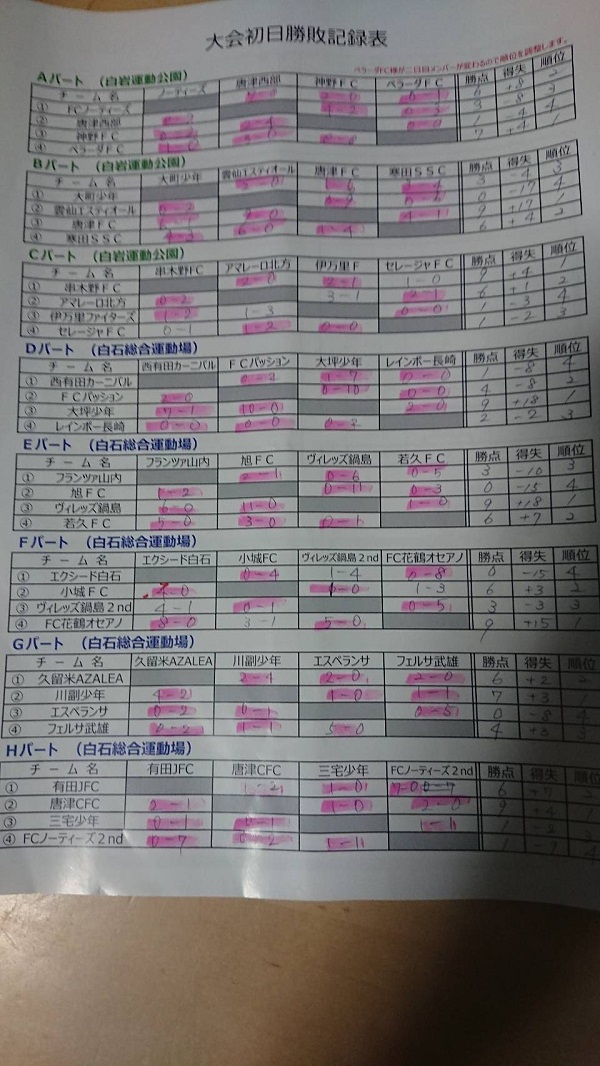 大会初日勝敗記録表
Aパート （白岩運動公園）
チーム名 ノーティーズ 唐津西部 神野FC ペラーダFC 勝点 得失 順位
① FCノーティーズ 6 +8 2
② 唐津西部 3 -8 3
③ 神野FC 1 -4 4
④ ペラーダFC 7 +4 1
Bパート （白岩運動公園）
チーム名 大町少年 雲仙エスティオール 唐津FC 寒田SSC 勝点 得失 順位
① 大町少年 3 -4 3
② 雲仙エスティオール 0-2 0 -17 4
③ 唐津FC 4-1 9 +17 1
④ 寒田SSC 6-0 1-4 6 +4 2
Cパート （白岩運動公園）
チーム名 串木野FC アマレーロ北方 伊万里F セレージャFC 勝点 得失 順位
① 串木野FC 2-0 2-1 1-0 9 +4 1
② アマレーロ北方 0-2 3-1 2-1 6 +1 2
③ 伊万里ファイターズ 1-2 1-3 0-0 1 -3 4
④ セレージャFC 0-1 1-2 0-0 1 -2 3
Dパート （白石総合運動場）
チーム名 西有田カーニバル FCパッション 大坪少年 レインボー長崎 勝点 得失 順位
① 西有田カーニバル 0-2 1-7 0-0 1 -8 4
② FCパッション 2-0 0-10 0-0 4 -8 2
③ 大坪少年 7-1 10-0 2-0 9 +18 1
④ レインボー長崎 0-0 0-0 0-2 2 -2 3
Eパート （白石総合運動場）
チーム名 フランツァ山内 旭FC ヴィレッズ鍋島 若久FC 勝点 得失 順位
① フランツァ山内 2-1 0-6 0-5 3 -10 3
② 旭FC 1-2 0-11 0-3 0 -15 4
③ ヴィレッズ鍋島 6-0 11-0 1-0 9 +18 1
④ 若久FC 5-0 3-0 0-1 6 +7 2
Fパート （白石総合運動場）
チーム名 エクシード白石 小城FC ヴィレッズ鍋島2nd FC花鶴オセアノ 勝点 得失 順位
① エクシード白石 0-4 1-4 0-8 0 -15 4
② 小城FC 4-0 1-0 1-3 6 +3 2
③ ヴィレッズ鍋島2nd 4-1 0-1 0-5 3 -3 3
④ FC花鶴オセアノ 8-0 3-1 5-0 9 +15 1
Gパート （白石総合運動場）
チーム名 久留米AZALEA 川副少年 エスペランサ フェルサ武雄 勝点 得失 順位
① 久留米AZALEA 2-4 2-0 2-0 6 +2 2
② 川副少年 4-2 1-0 1-1 7 +3 1
③ エスペランサ 0-2 0-1 0-5 0 -8 4
④ フェルサ武雄 0-2 1-1 5-0 4 +3 3
Hパート （白石総合運動場）
チーム名 有田JFC 唐津CFC 三宅少年 FCノーティーズ2nd 勝点 得失 順位
① 有田JFC 1-2 1-0 7-0 6 +7 2
② 唐津CFC 2-1 1-0 2-0 9 +4 1
③ 三宅少年 0-1 0-1 1-1
④ FCノーティーズ2nd 0-7 0-2 1-1 1 4